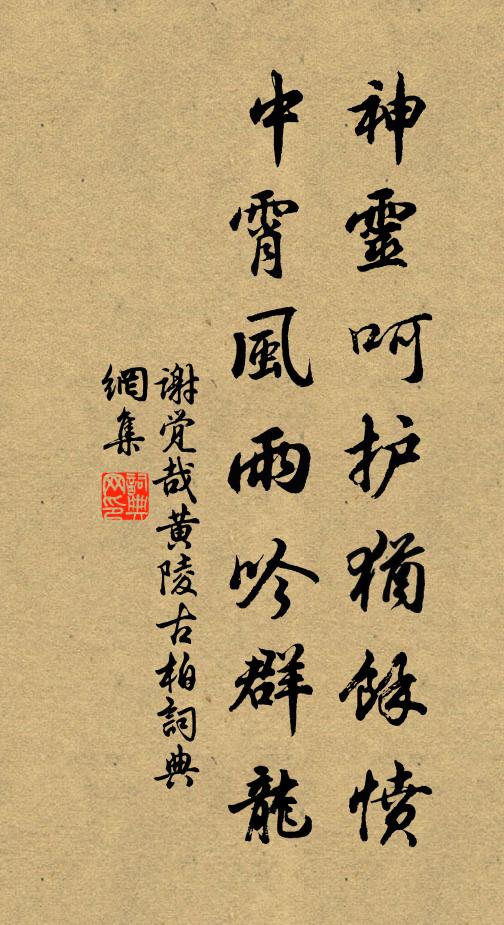 神靈呵护猶餘憤
中霄風雨吟群龍
谢觉哉黄陵古柏詞典
網集
詞典
网印